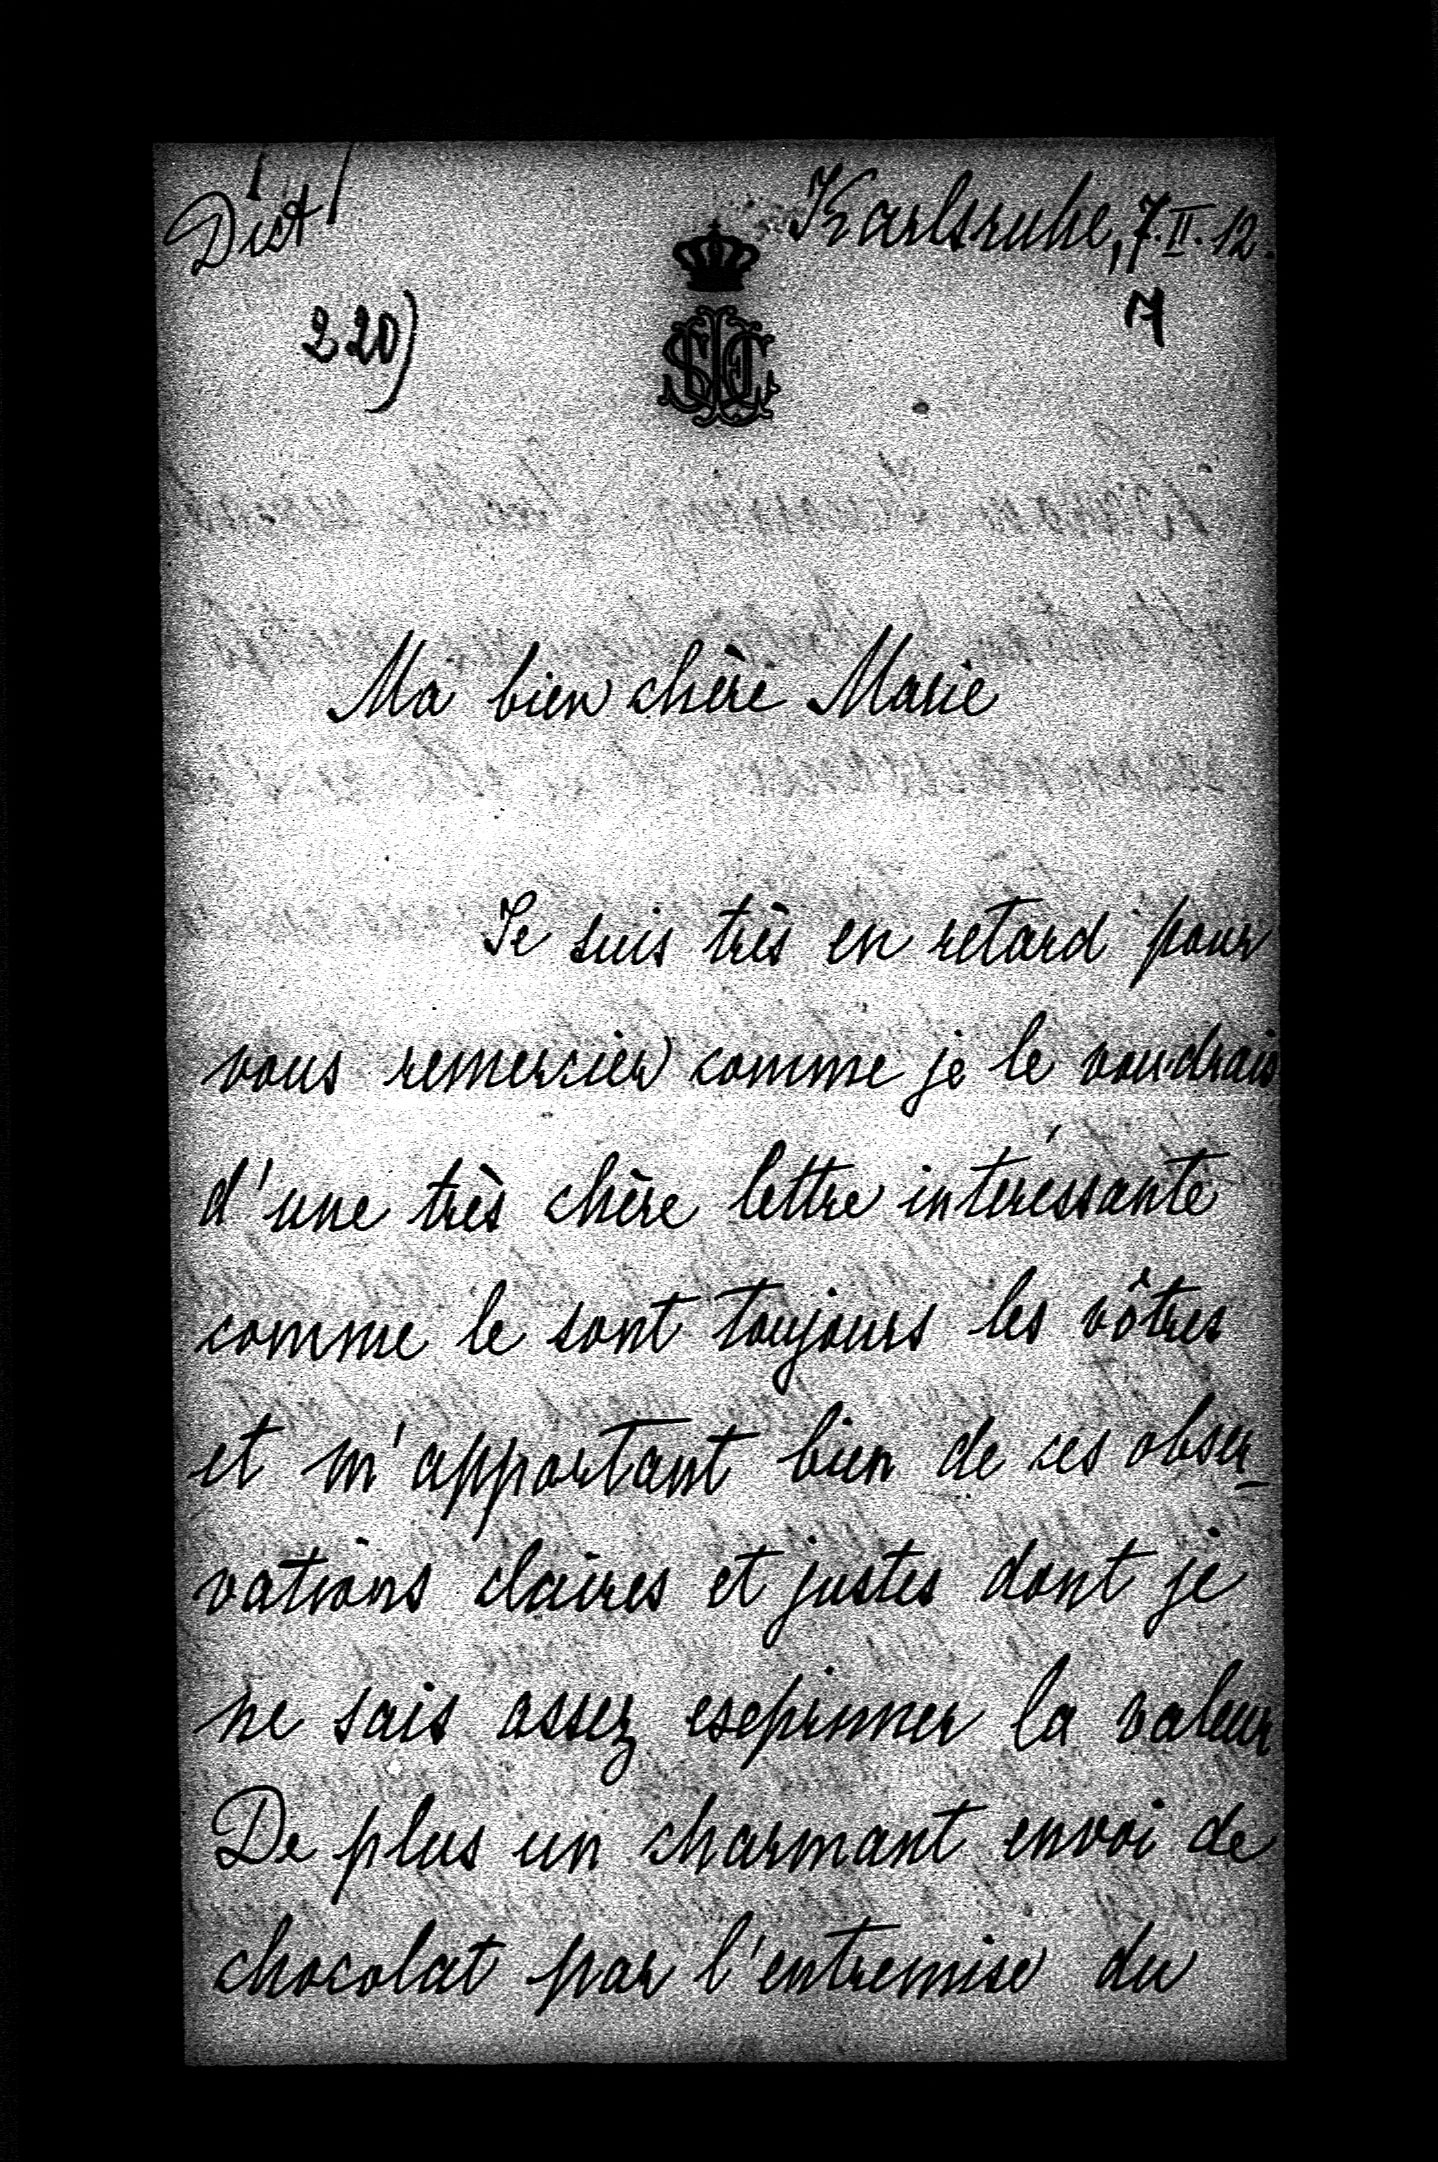 Dict
Karlsruhe, 7.II.12.
220)
7
Ma bien chère Marie
Je suis très en retard pour
vous remercier comme je le voudrais
d'une très chère lettre intéressante
comme le sont toujours les vôtres
et m'apportant bien de ces obser-
vations claires et justes dont je
ne sais assez esprimer la valeur
De plus un charmant envoi de
chocolat par l'entremise du